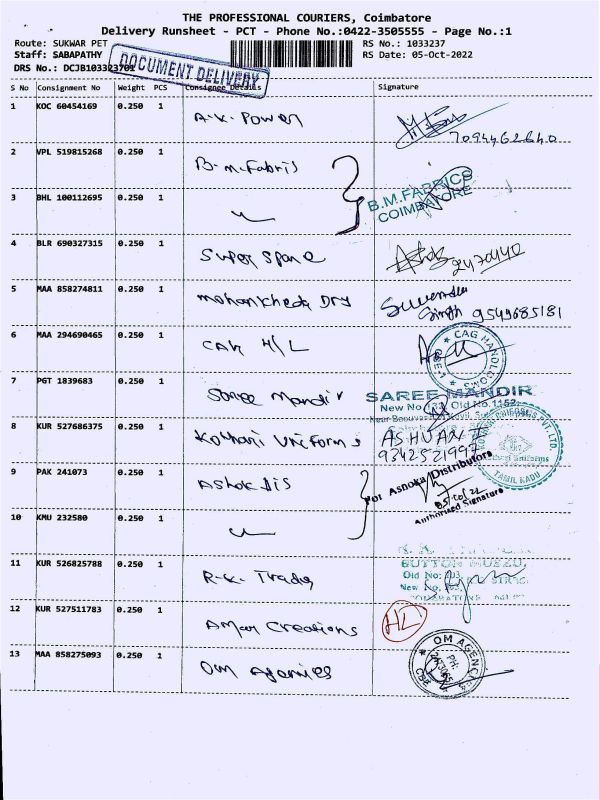 THE PROFESSIONAL COURIERS, Coimbatore
Delivery Runsheet - PCT - Phone No.:0422-3505555 - Page No.:1
Route: SUKWAR PET RS No.: 1033237
Staff: SABAPATHY RS Date: 05-Oct-2022
DRS No.: DCJB103323701
DOCUMENT DELIVERY
S No Consignment No Weight PCS Consignee Details Signature
1 KOC 60454169 0.250 1 A.K. Power
7094462640
2 VPL 519815268 0.250 1 B.m.Fabris
B.M.FABRICS
COIMBATORE
3 BHL 100112695 0.250 1
4 BLR 690327315 0.250 1 Super Spare
5 MAA 858274811 0.250 1 mohankheda Dry Surender
Singh 9549685181
6 MAA 294690465 0.250 1 CAG H/L
CAG
7 PGT 1839683 0.250 1 Saree Mandir
SAREE MANDIR
New No Old No.1152
8 KUR 527686375 0.250 1 Kothari Uniforms
9342521997
TAMIL NADU
9 PAK 241073 0.250 1 Ashok dis
For Ashoka Distributors
Authorised Signature
10 KMU 232580 0.250 1
11 KUR 526825788 0.250 1 R.K. Trade
BUTTON
Old No:
New No.
12 KUR 527511783 0.250 1 Amar Creations HL
13 MAA 858275093 0.250 1 Om Agencies
OM AGENCIES
PH:
CBE